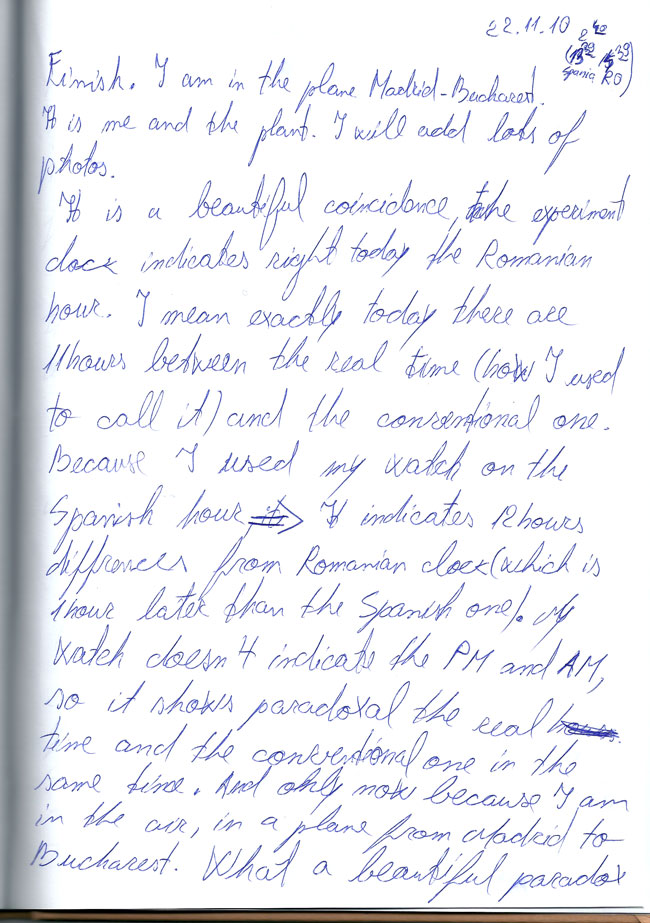 22.11.10 2 40
(13 39 15 39)
Spania RO
Finish. I am in the plane Madrid-Bucharest.
It is me and the plant. I will add lots of
photos.
It is a beautiful coincidance, the experiment
clock indicates right today the Romanian
hour. I mean exactly today there are
11hours between the real time (how I used
to call it) and the conventional one.
Because I used my watch on the
Spanish hour => It indicates 12hours
diffrences from Romanian clock (which is
1hour later than the Spanish one). My
watch doesn't indicate the PM and AM,
so it shows paradoxal the real
time and the conventional one in the
same time. And only now because I am
in the air, in a plane from Madrid to
Bucharest. What a beautiful paradox